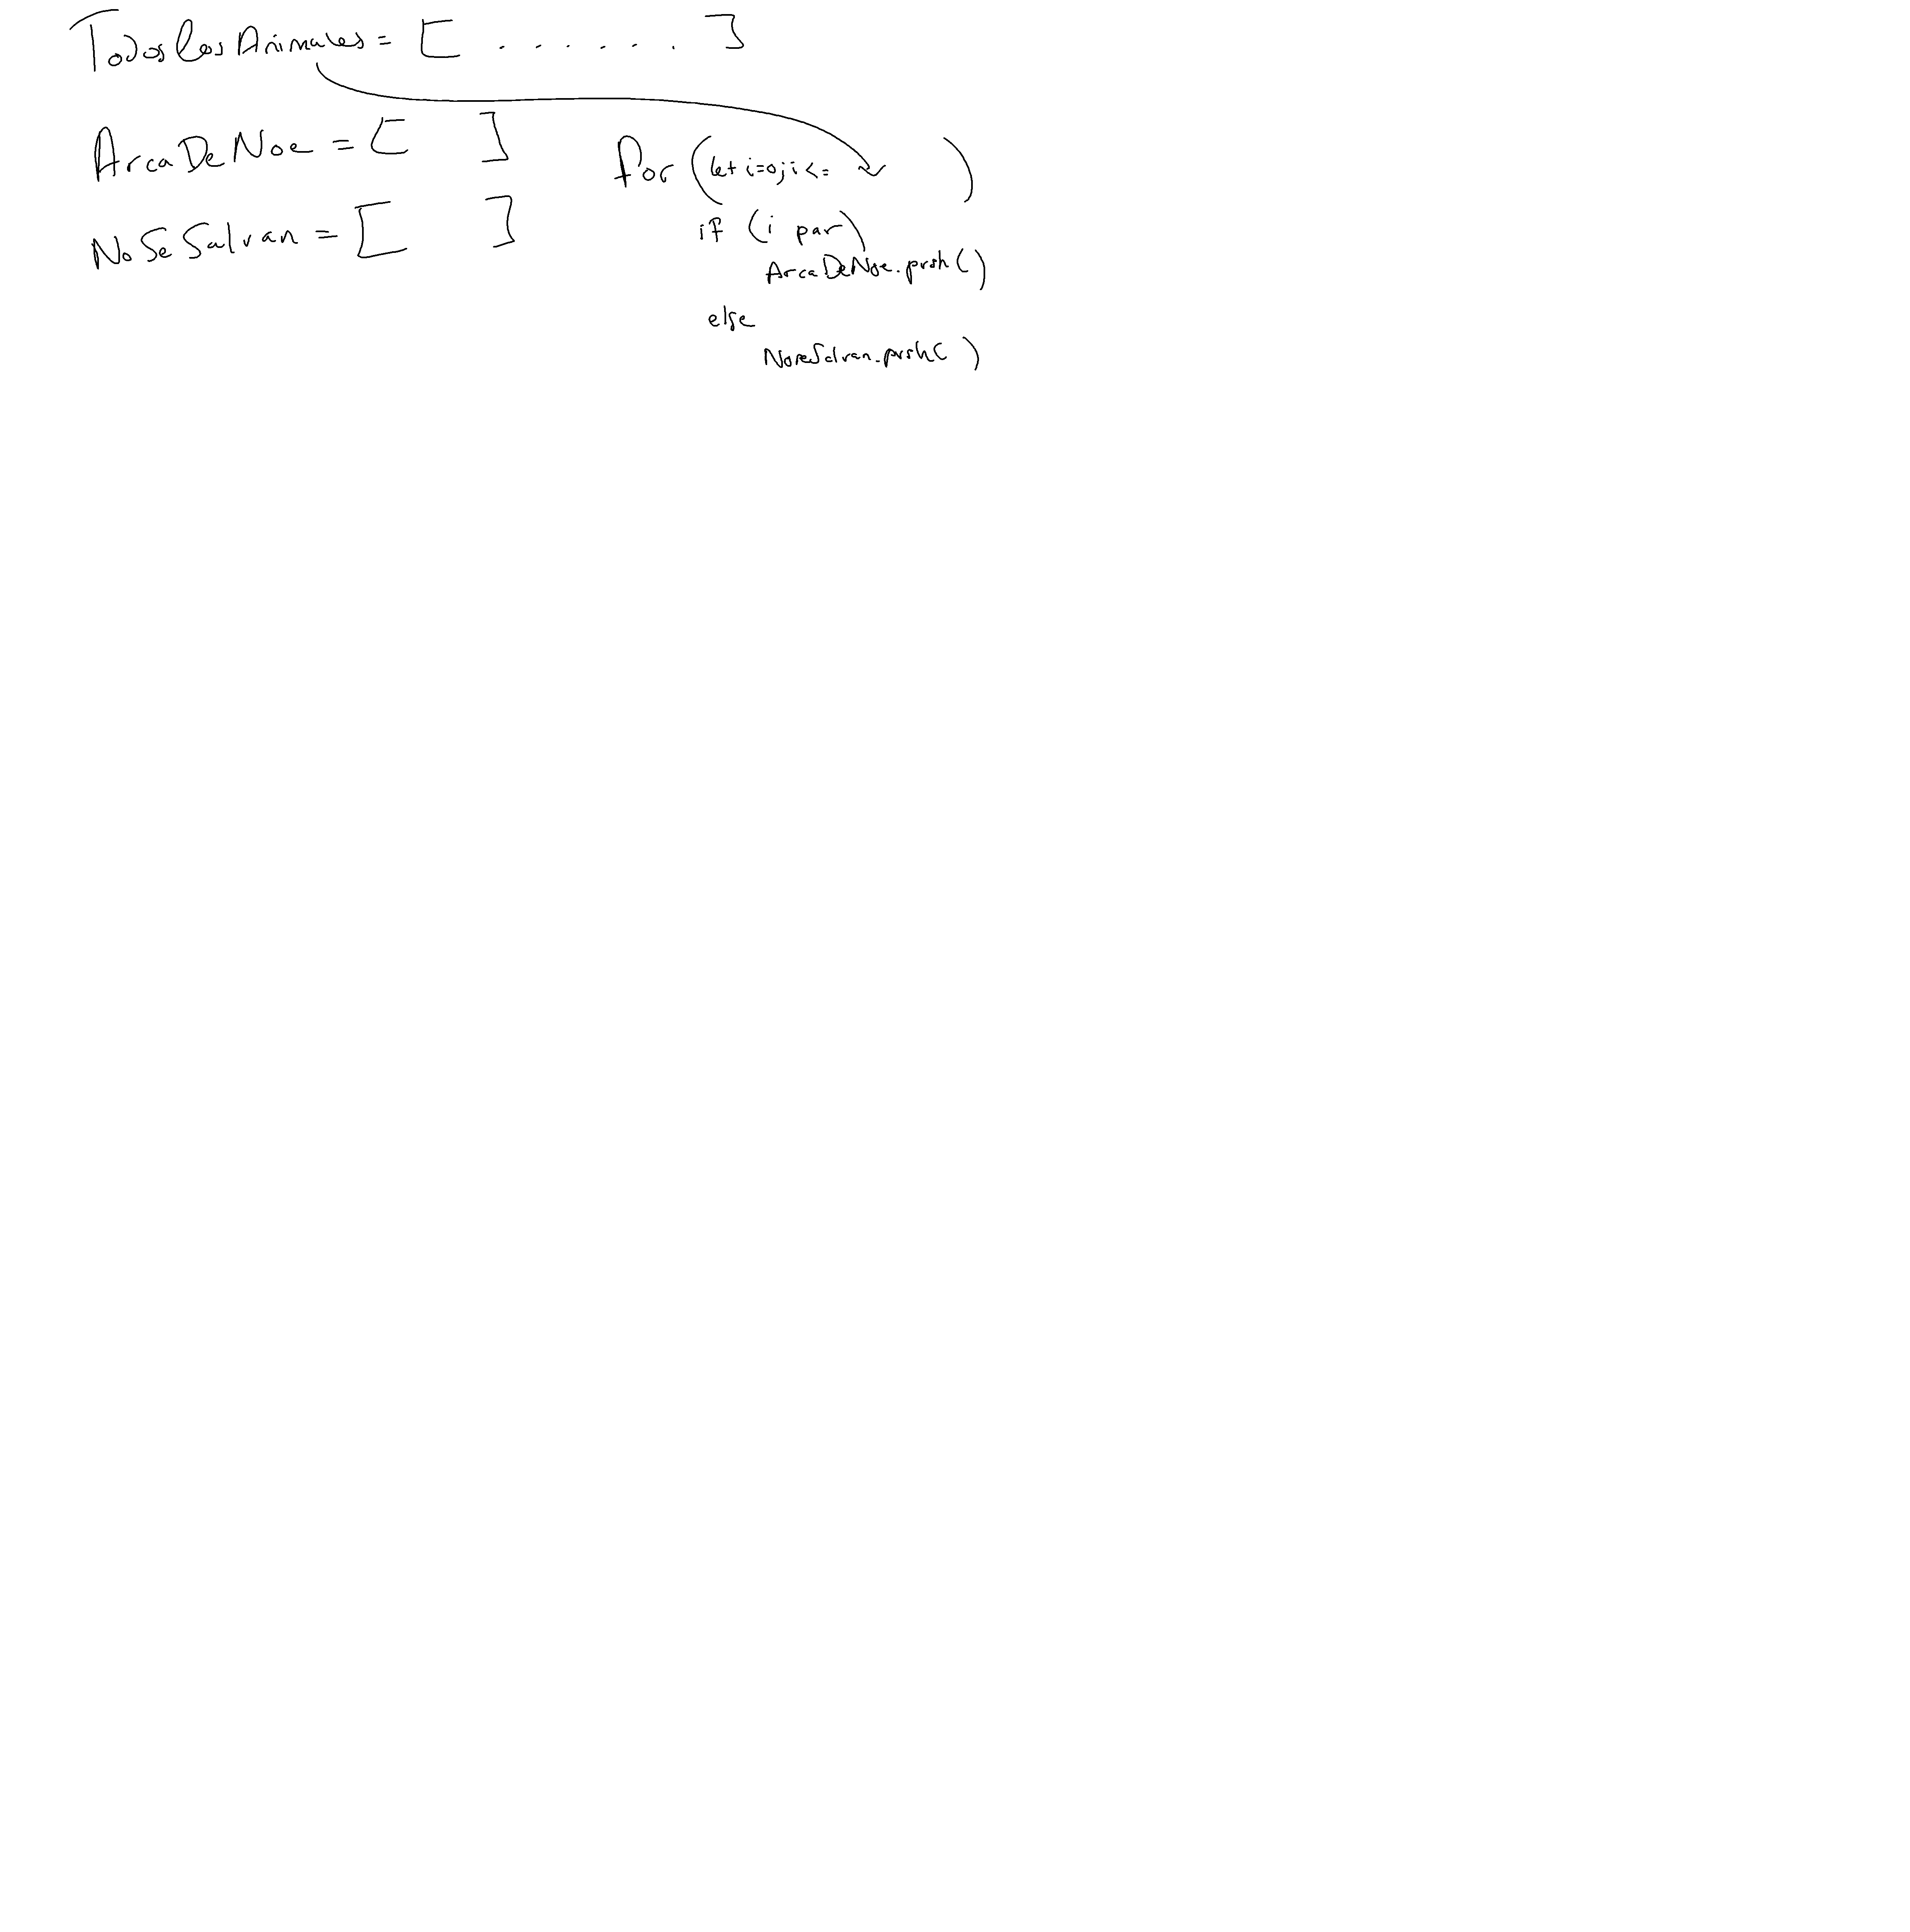 TodosLosAnimales = [ . . . . . . ]
ArcaDeNoe = [ ]
NoSeSalvan = [ ]
for (let i=0; i <= )
if (i par)
ArcaDeNoe.push( )
else
NoseSalvan.push( )